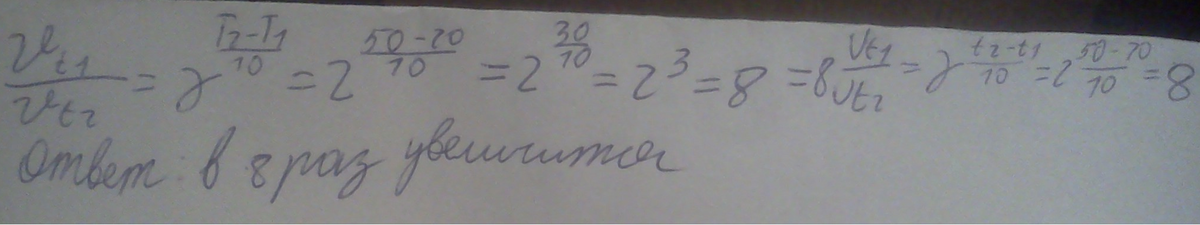 v_t1/v_t2 = γ^((T2-T1)/10) = 2^((50-20)/10) = 2^(30/10) = 2^3 = 8 = 8 Vt1/Vt2 = γ^((t2-t1)/10) = 2^((50-20)/10) = 8
Ответ: в 8 раз увеличится